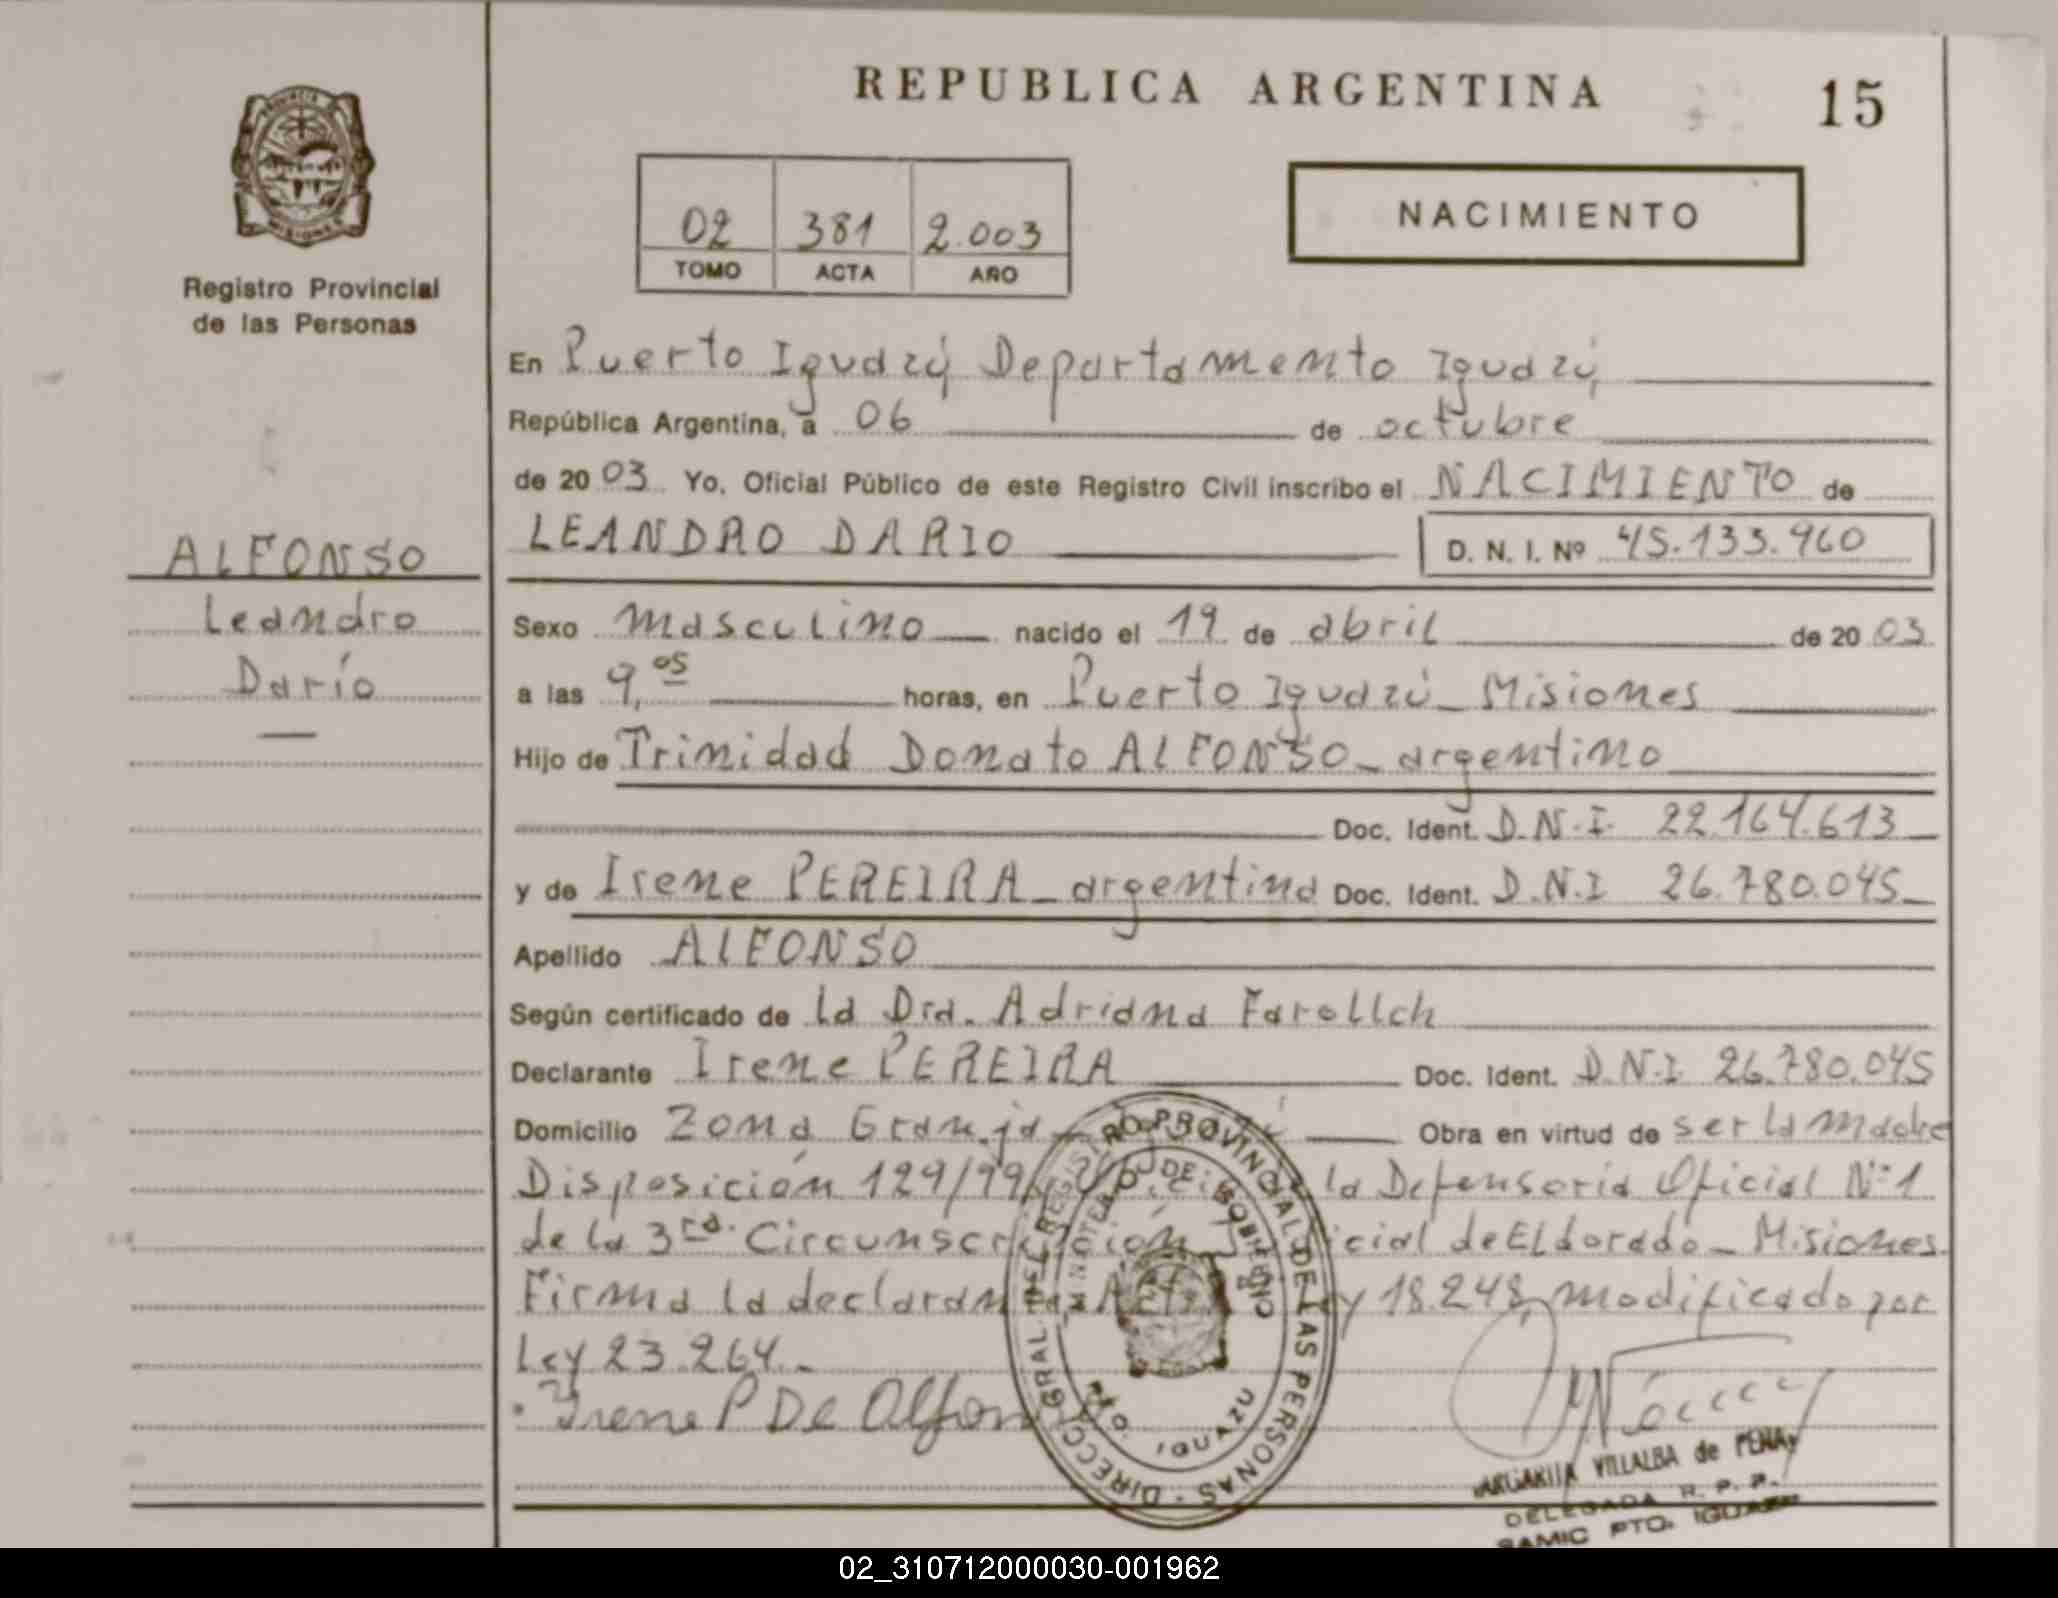 REPUBLICA ARGENTINA
15
PROVINCIA DE MISIONES
Registro Provincial
de las Personas
02 381 2.003
TOMO ACTA AÑO
NACIMIENTO
En Puerto Iguazú, Departamento Iguazú,
República Argentina, a 06 de octubre
de 2003 Yo, Oficial Público de este Registro Civil inscribo el NACIMIENTO de
LEANDRO DARIO D. N. I. Nº 45.133.960
ALFONSO
Leandro
Darío
Sexo masculino nacido el 19 de abril de 2003
a las 9,05 horas, en Puerto Iguazú - Misiones
Hijo de Trinidad Donato ALFONSO - argentino
Doc. Ident. D.N.I. 22.164.613
y de Irene PEREIRA - argentina Doc. Ident. D.N.I 26.780.045
Apellido ALFONSO
Según certificado de la Dra. Adriana Farollch
Declarante Irene PEREIRA Doc. Ident. D.N.I. 26.780.045
Domicilio Zona Granja Obra en virtud de ser la madre
Disposición 129/99 la Defensoría Oficial Nº 1
de la 3ra. Circunscripción de Eldorado - Misiones.
Firma la declarante 18.248, modificado por
Ley 23.264.-
Irene P De Alfonso
DIRECC. GRAL. DEL REGISTRO PROVINCIAL DE LAS PERSONAS
MINISTERIO DE GOBIERNO
PTO. IGUAZU
VILLALBA de PENA
DELEGADA R. P. P.
SAMIC PTO. IGUAZU
02_310712000030-001962